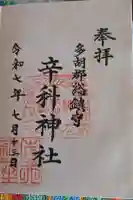 奉拝
多胡郡総鎮守
辛科神社
令和七年七月十三日